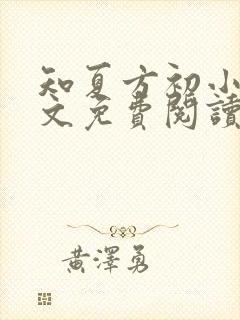 知夏方初小
文免費閱讀
黃澤勇